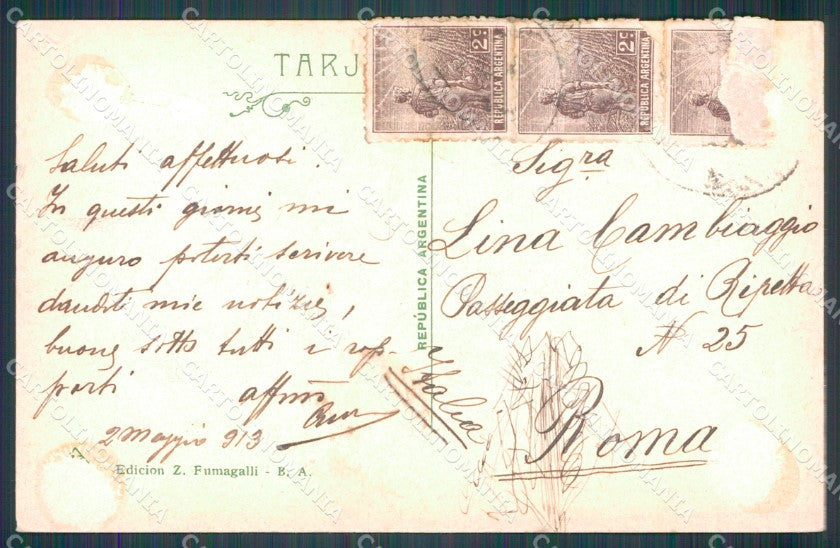 TARJ
2c REPÚBLICA ARGENTINA
2c REPÚBLICA ARGENTINA
Saluti affettuosi.
In questi giorni mi
auguro poterti scrivere
dandoti mie notizie,
buone sotto tutti i rap-
porti
affmo
2 Maggio 913
Edicion Z. Fumagalli - B. A.
REPÚBLICA ARGENTINA
Sigra
Lina Cambiaggio
Passeggiata di Ripetta
N 25
Roma
Italia
CARTOLINOMANIA